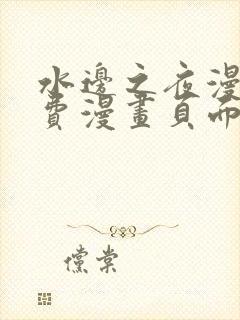 水邊之夜漫
費漫畫頁而
儻棠